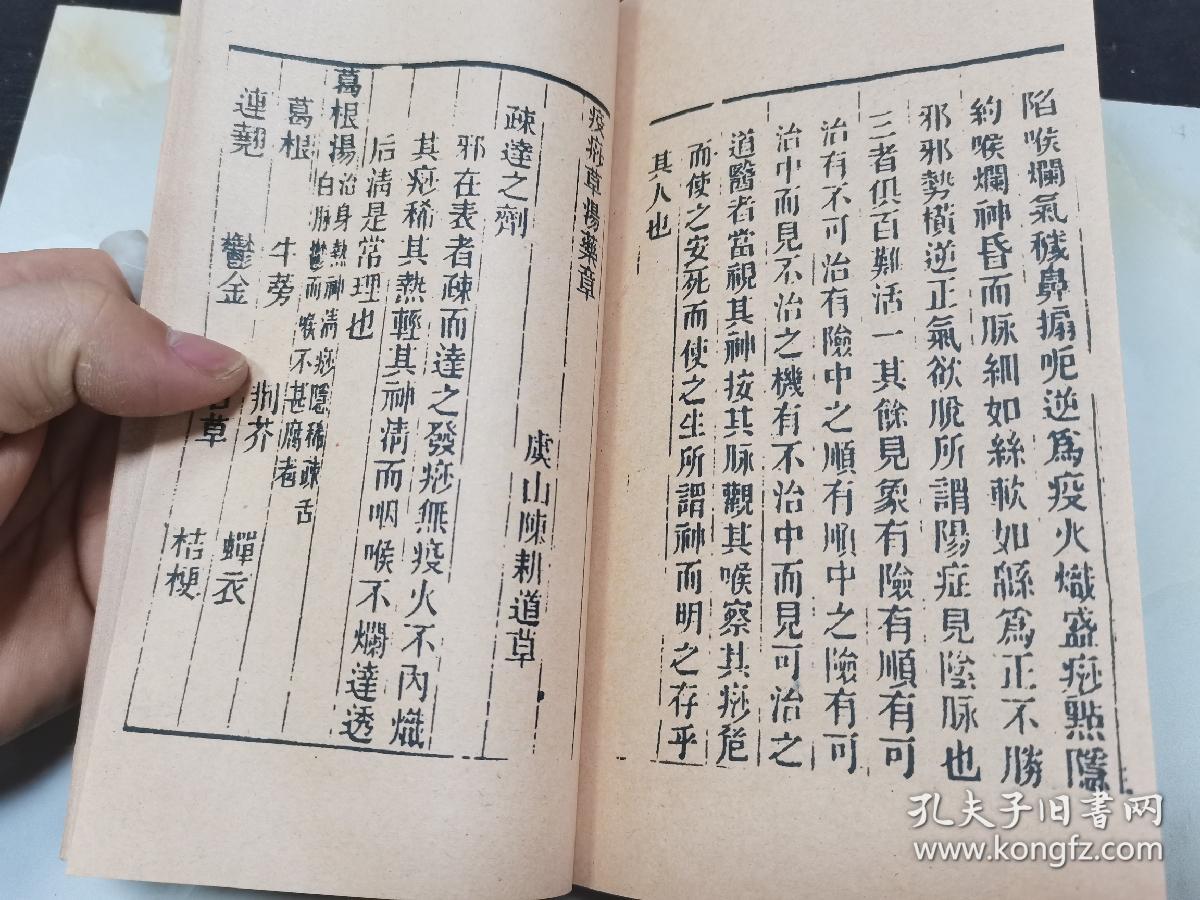 陷喉爛氣穢鼻搧呃逆爲疫火熾盛痧點隱
約喉爛神昏而脉細如絲軟如綿爲正不勝
邪邪勢橫逆正氣欲脫所謂陽症見陰脉也
三者俱百難活一其餘見象有險有順有可
治有不可治有險中之順有順中之險有可
治中而見不治之機有不治中而見可治之
道醫者當視其神按其脉觀其喉察其痧危
而使之安死而使之生所謂神而明之存乎
其人也
疫痧草湯藥章
虞山陳耕道草
疎達之劑
邪在表者疎而達之發痧無疫火不內熾
其痧稀其熱輕其神清而咽喉不爛達透
后清是常理也
葛根湯 治身熱神清痧隱稀疎舌
白脉鬱而喉不甚腐者
葛根 牛蒡 荆芥 蟬衣
連翹 鬱金 草 桔梗
孔夫子旧书网
www.kongfz.com